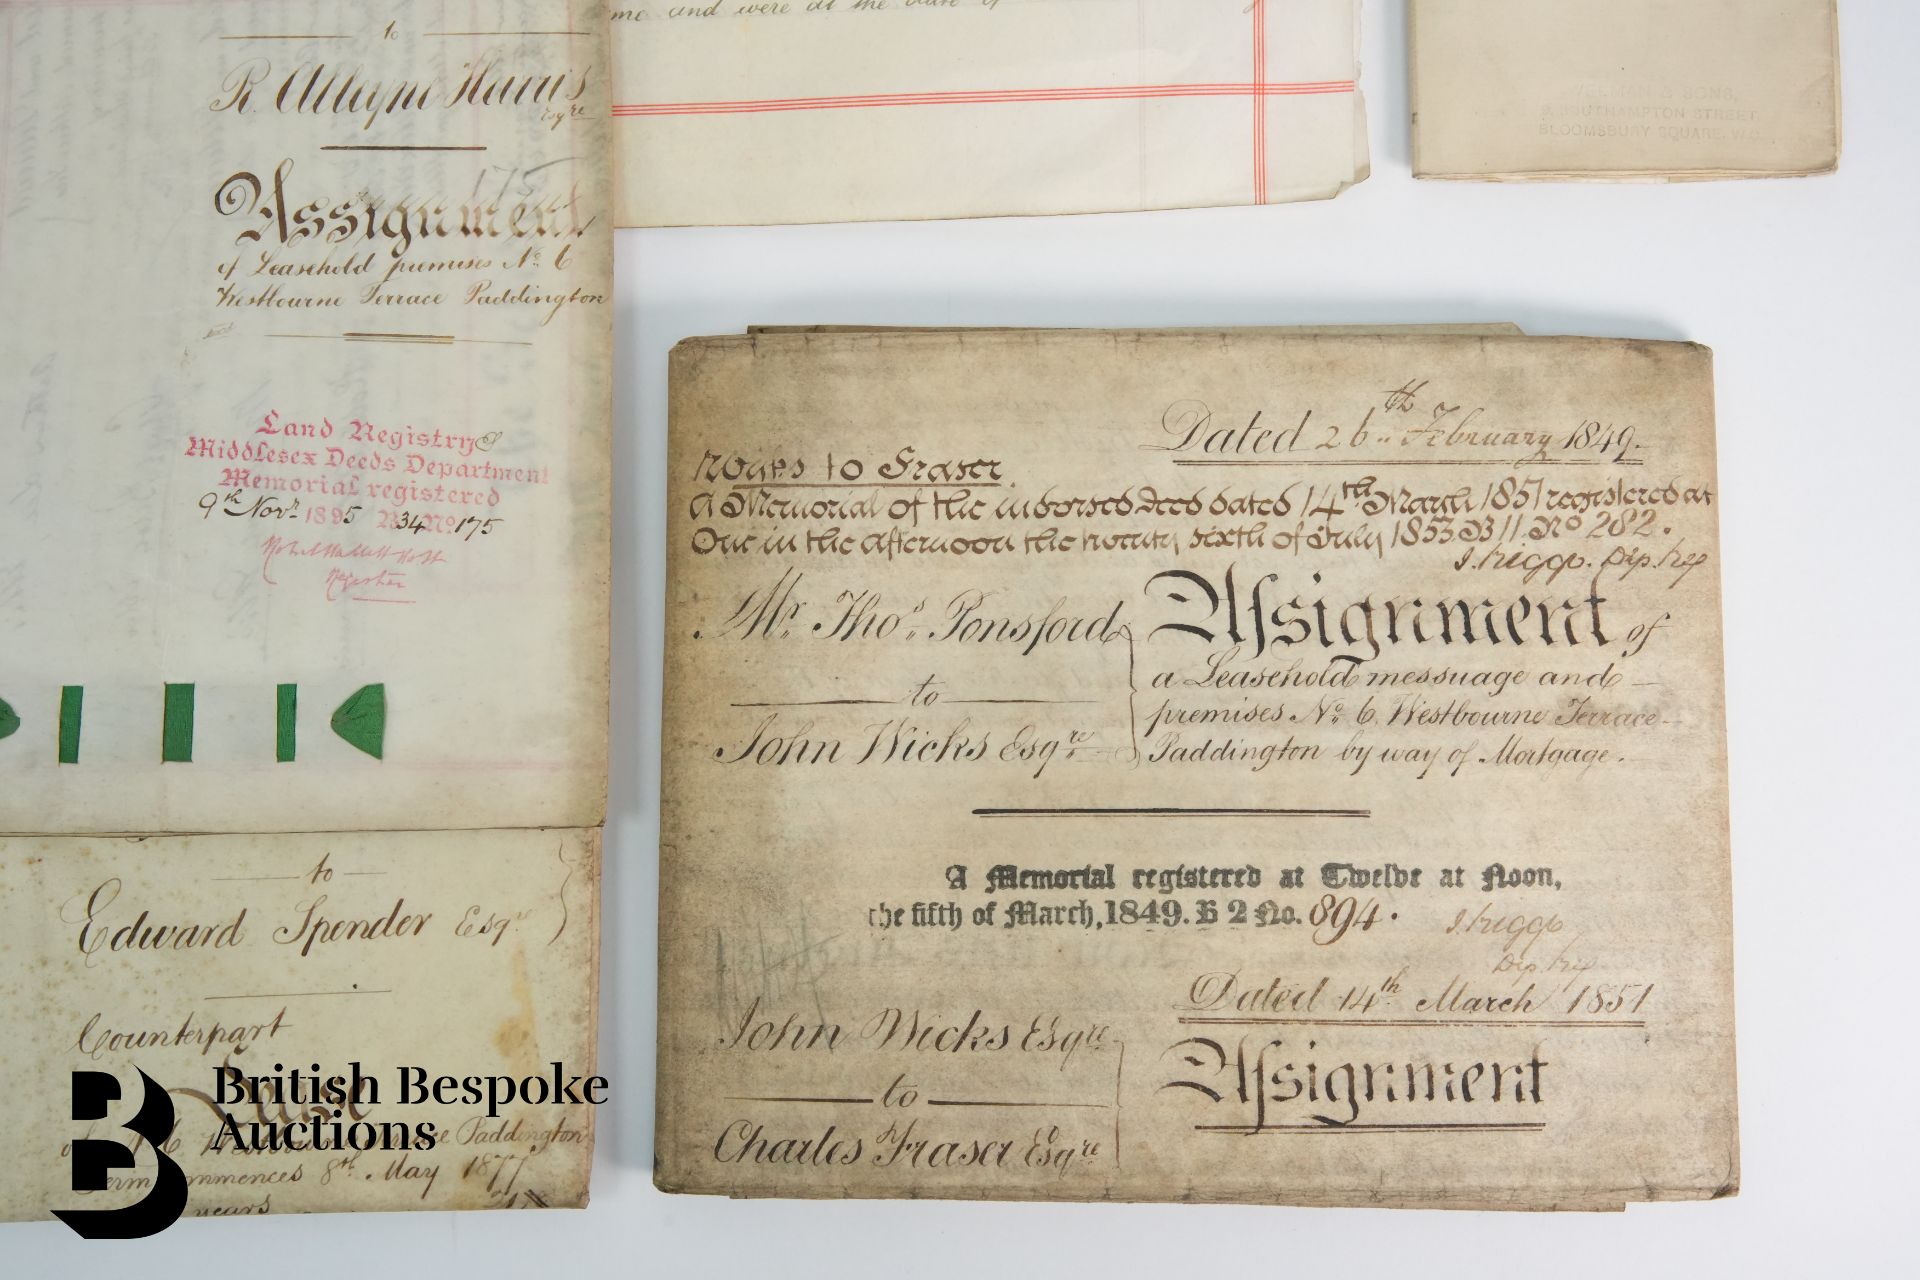 me and were at the date of
to
R. Alleyne Harris
Esqre
175
Assignment
of Leasehold premises No. 6
Westbourne Terrace Paddington
Land Registry
Middlesex Deeds Department
Memorial registered
9th Novr. 1895 B34 No 175
Register
to
Edward Spender Esqre
Counterpart
Lease
Paddington
commences 8th May 1877
years
& SONS,
SOUTHAMPTON STREET,
BLOOMSBURY SQUARE, W.C.
Dated 26th February 1849.
Wicks to Fraser
A Memorial of the indorsed Deed dated 14th March 1851 registered at
One in the afternoon the twenty sixth of July 1853 B 11. No 282.
Dep. Reg
Mr. Thos. Ponsford
to
John Wicks Esqre
Assignment of
a Leasehold messuage and
premises No. 6. Westbourne Terrace
Paddington by way of Mortgage.
A Memorial registered at Twelve at Noon,
the fifth of March, 1849. B 2 No. 894.
Dep. Reg
Dated 14th March 1851
John Wicks Esqre
to
Charles Fraser Esqre
Assignment
British Bespoke
Auctions